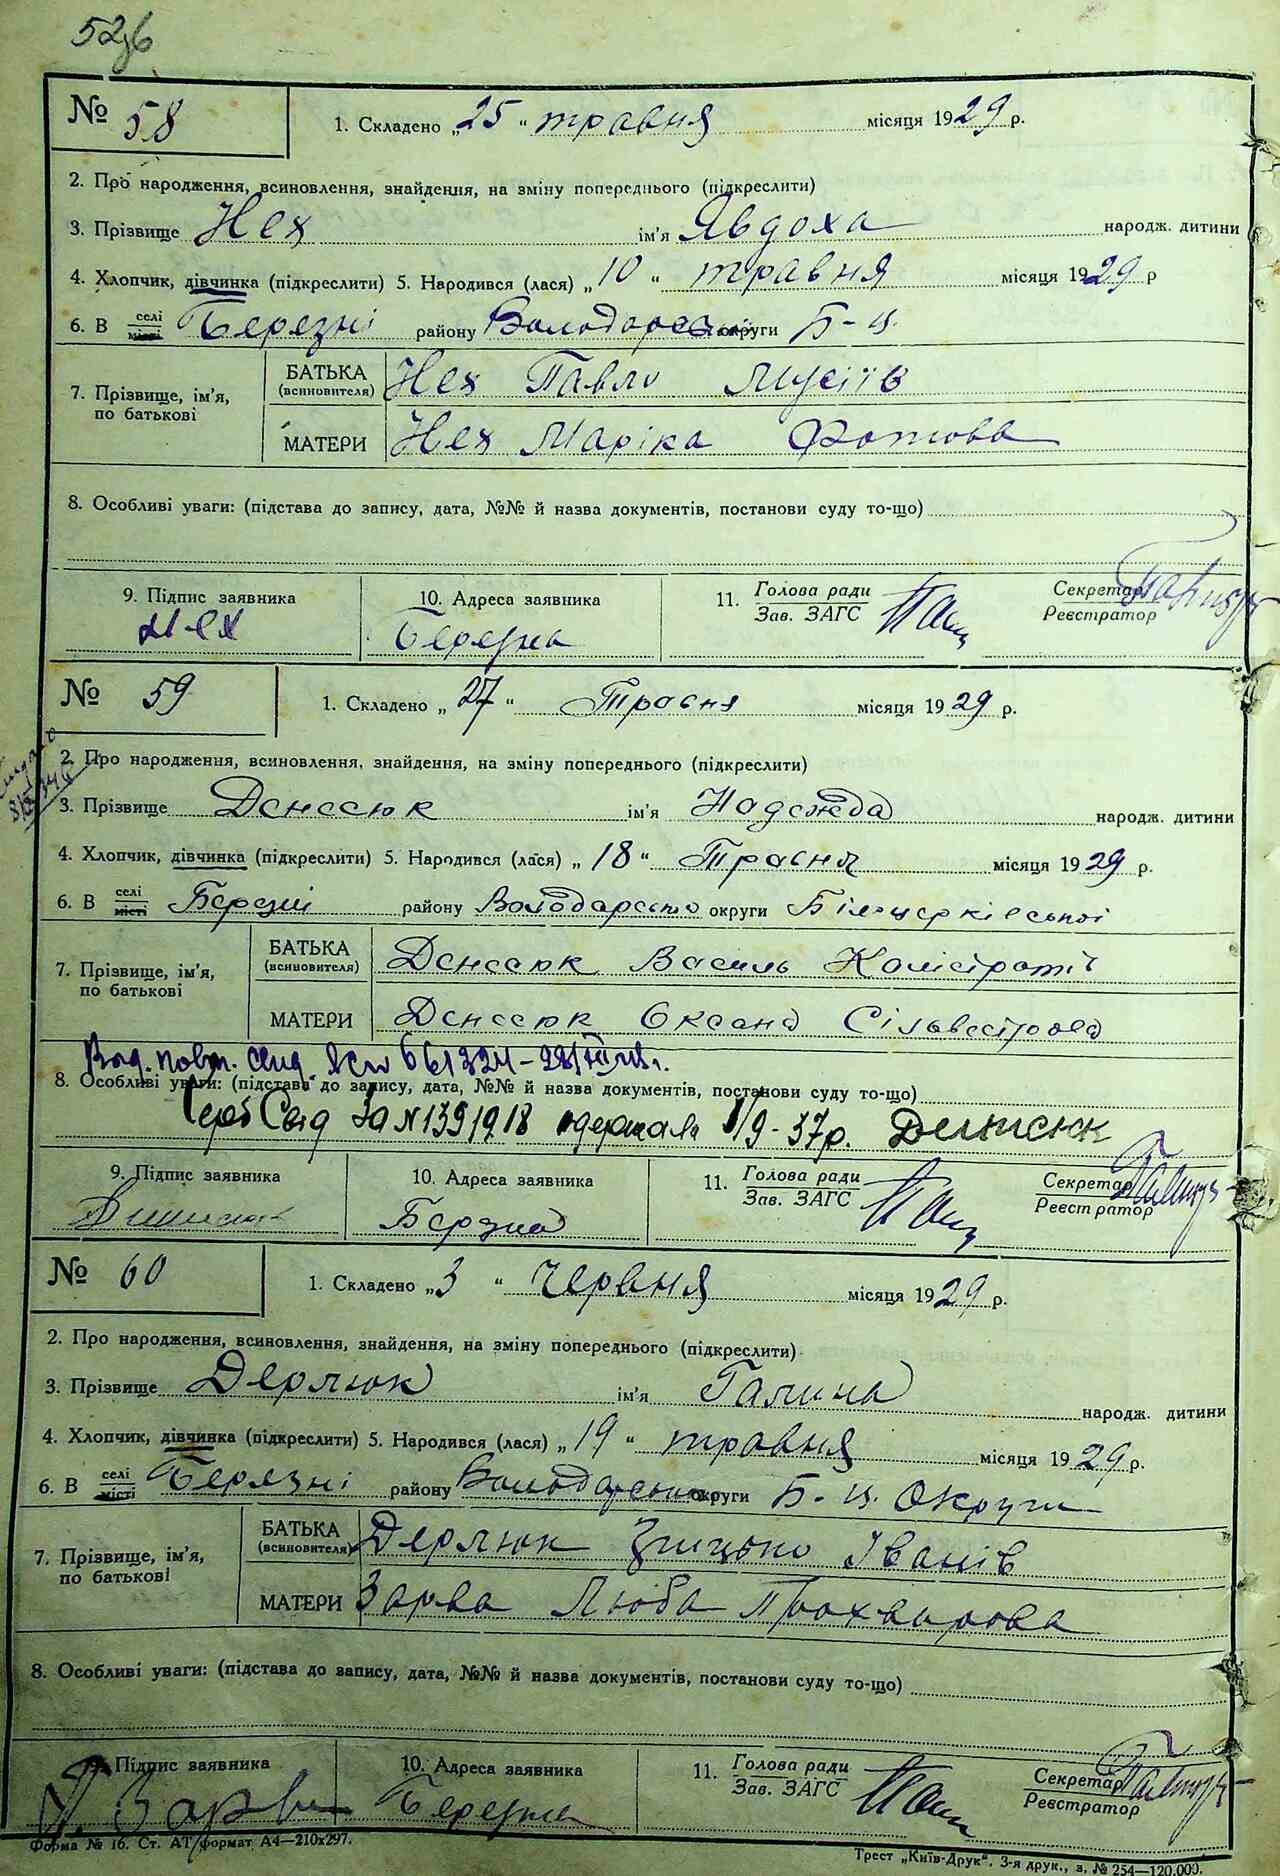 № 58
1. Складено „25“ травня місяця 1929 р.
2. Про народження, всиновлення, знайдення, на зміну попереднього (підкреслити)
3. Прізвище Нех ім'я Явдоха народж. дитини
4. Хлопчик, дівчинка (підкреслити) 5. Народився (лася) „10“ травня місяця 1929 р
6. В селі місті Березні району Володарської округи Б-Ц.
7. Прізвище, ім'я, по батькові
БАТЬКА (всиновителя) Нех Павло Мусіїв
МАТЕРИ Нех Маріка Фотова
8. Особливі уваги: (підстава до запису, дата, №№ й назва документів, постанови суду то-що)
9. Підпис заявника 10. Адреса заявника 11. Голова ради Зав. ЗАГС Секретар Реєстратор
Нех Березна
№ 59
1. Складено „27“ Травня місяця 1929 р.
2. Про народження, всиновлення, знайдення, на зміну попереднього (підкреслити)
3. Прізвище Денесюк ім'я Надежда народж. дитини
4. Хлопчик, дівчинка (підкреслити) 5. Народився (лася) „18“ Травня місяця 1929 р.
6. В селі місті Березні району Володарського округи Білоцерківської
7. Прізвище, ім'я, по батькові
БАТЬКА (всиновителя) Денесюк Василь Калістратів
МАТЕРИ Денесюк Оксана Сільвестрова
8. Особливі уваги: (підстава до запису, дата, №№ й назва документів, постанови суду то-що)
Свід за №1391918 одержала 1/9-37р.
9. Підпис заявника 10. Адреса заявника 11. Голова ради Зав. ЗАГС Секретар Реєстратор
Березна
№ 60
1. Складено „3“ Червня місяця 1929 р.
2. Про народження, всиновлення, знайдення, на зміну попереднього (підкреслити)
3. Прізвище Дерлюк ім'я Галина народж. дитини
4. Хлопчик, дівчинка (підкреслити) 5. Народився (лася) „19“ травня місяця 1929 р.
6. В селі місті Березні району Володарського округи Б-Ц. Округи
7. Прізвище, ім'я, по батькові
БАТЬКА (всиновителя) Дерлюк Грицько Іванів
МАТЕРИ Зарва Люба
8. Особливі уваги: (підстава до запису, дата, №№ й назва документів, постанови суду то-що)
9. Підпис заявника 10. Адреса заявника 11. Голова ради Зав. ЗАГС Секретар Реєстратор
Зарва Березна
Форма № 16. Ст. АТ/формат А4—210x297.
Трест „Київ-Друк“. 3-я друк., з. № 254—120.000.